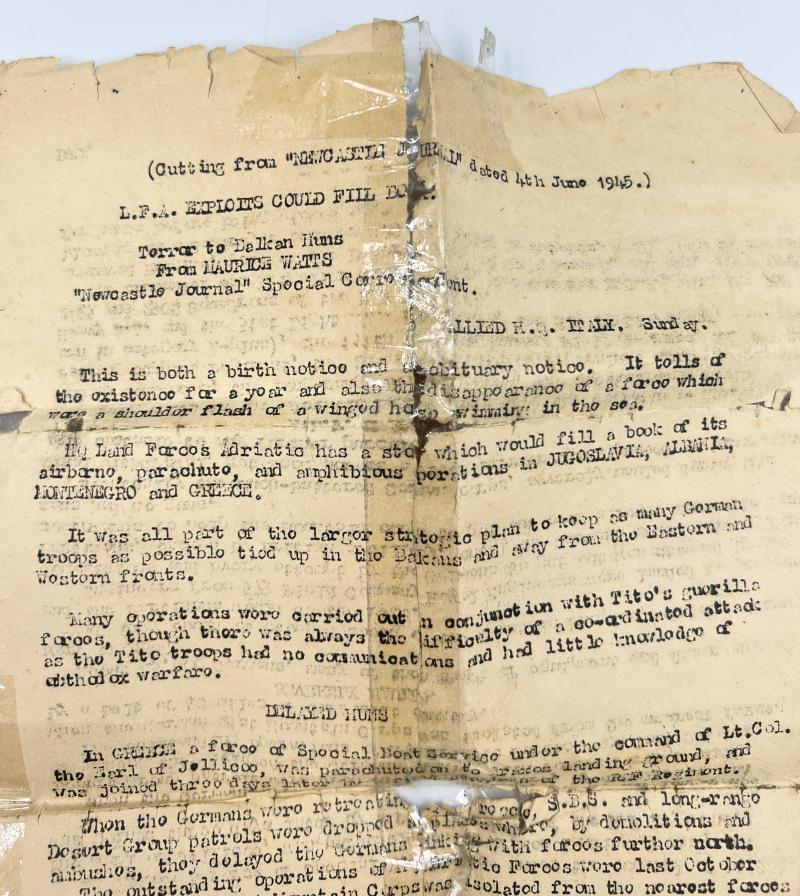 (Cutting from "NEWCASTLE JOURNAL" dated 4th June 1945.)
L.F.A. EXPLOITS COULD FILL BOOK.
Terror to Balkan Huns
From MAURICE WATTS
"Newcastle Journal" Special Correspondent.
ALLIED H.Q. ITALY. Sunday.
This is both a birth notice and a obituary notice. It tells of
the existence for a year and also the disappearance of a force which
wore a shoulder flash of a winged horse swimming in the sea.
HQ Land Forces Adriatic has a story which would fill a book of its
airborne, parachute, and amphibious operations in JUGOSLAVIA, ALBANIA,
MONTENEGRO and GREECE.
It was all part of the larger strategic plan to keep as many German
troops as possible tied up in the Balkans and away from the Eastern and
Western fronts.
Many operations were carried out in conjunction with Tito's guerilla
forces, though there was always the difficulty of a co-ordinated attack
as the Tito troops had no communications and had little knowledge of
othodox warfare.
DELAYED HUNS
In GREECE a force of Special Boat Service under the command of Lt.Col.
the Earl of Jellicoe, was parachuted on to Araxos landing ground, and
was joined three days later by squadron of the RAF Regiment.
When the Germans were retreating Greece, S.B.S. and long-range
Desert Group patrols were dropped where, by demolitions and
ambushes, they delayed the Germans linking with forces further north.
The outstanding operations of Forces were last October
Mountain Corps was isolated from the nearest forces